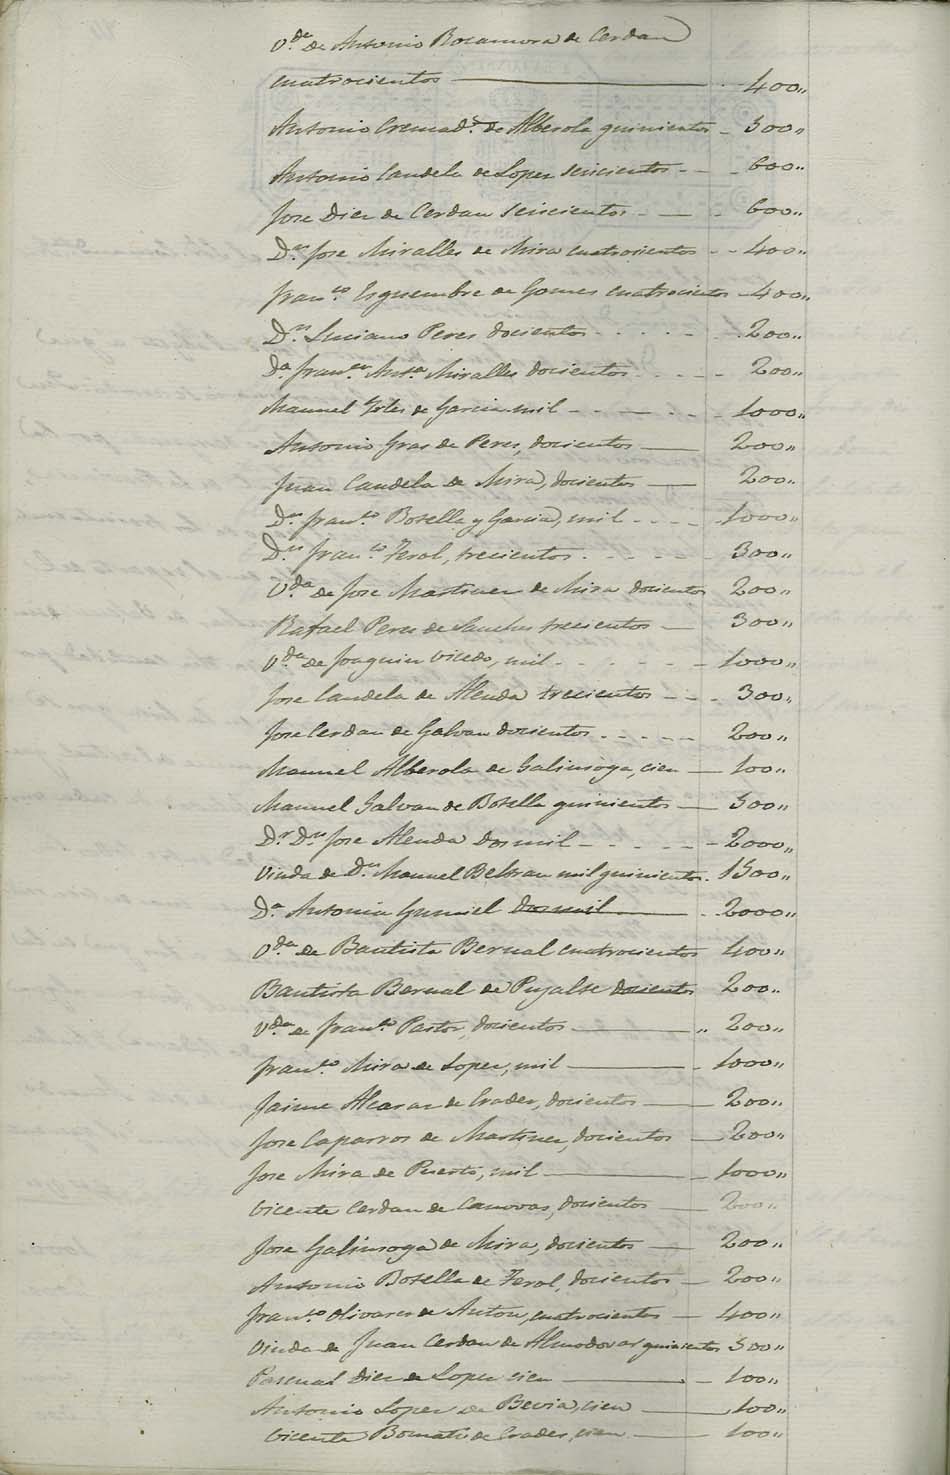 V.da de Antonio Rocamora de Cerdan
cuatrocientos 400,,
Antonio Cremad.s de Alberola quinientos 500,,
Antonio Candela de Lopez seicientos 600,,
Jose Diez de Cerdan seicientos 600,,
D.n Jose Miralles de Mira cuatrocientos 400,,
Fran.co Esquembre de Gomes cuatrocientos 400,,
D.n Luciano Peres docientos 200,,
D.a Fran.ca Ant.a Miralles docientos 200,,
Manuel de Garcia mil 1000,,
Antonio Gras de Peres, docientos 200,,
Juan Candela de Mira, docientos 200,,
D.n Fran.co Botella y Garcia, mil 1000,,
D.n Fran.co Ferol, trecientos 300,,
V.da de Jose Martinez de Mira docientos 200,,
Rafael Peres de Sanches trecientos 300,,
V.da de Joaquin Vicedo, mil 1000,,
Jose Candela de Alenda trecientos 300,,
Jose Cerdan de Galvan docientos 200,,
Manuel Alberola de Galinsoga, cien 100,,
Manuel Galvan de Botella quinientos 500,,
D.r D.n Jose Alenda dos mil 2000,,
Viuda de D.n Manuel Beltran mil quinientos 1500,,
D.a Antonia Gumiel dos mil 2000,,
V.da de Bautista Bernal cuatrocientos 400,,
Bautista Bernal de Pujalte docientos 200,,
V.da de Fran.co Pastor, docientos 200,,
Fran.co Mira de Lopez, mil 1000,,
Jaime Alcaraz de Crades, docientos 200,,
Jose Caparros de Martinez, docientos 200,,
Jose Mira de Puerto, mil 1000,,
Vicente Cerdan de Canovas, docientos 200,,
Jose Galinsoga de Mira, docientos 200,,
Antonio Botella de Ferol, docientos 200,,
Fran.co Olivares de Anton, cuatrocientos 400,,
Viuda de Juan Cerdan de Almodovar quinientos 500,,
Pascual Diez de Lopez cien 100,,
Antonio Lopez de Bevia, cien 100,,
Vicente de Crades, cien 100,,